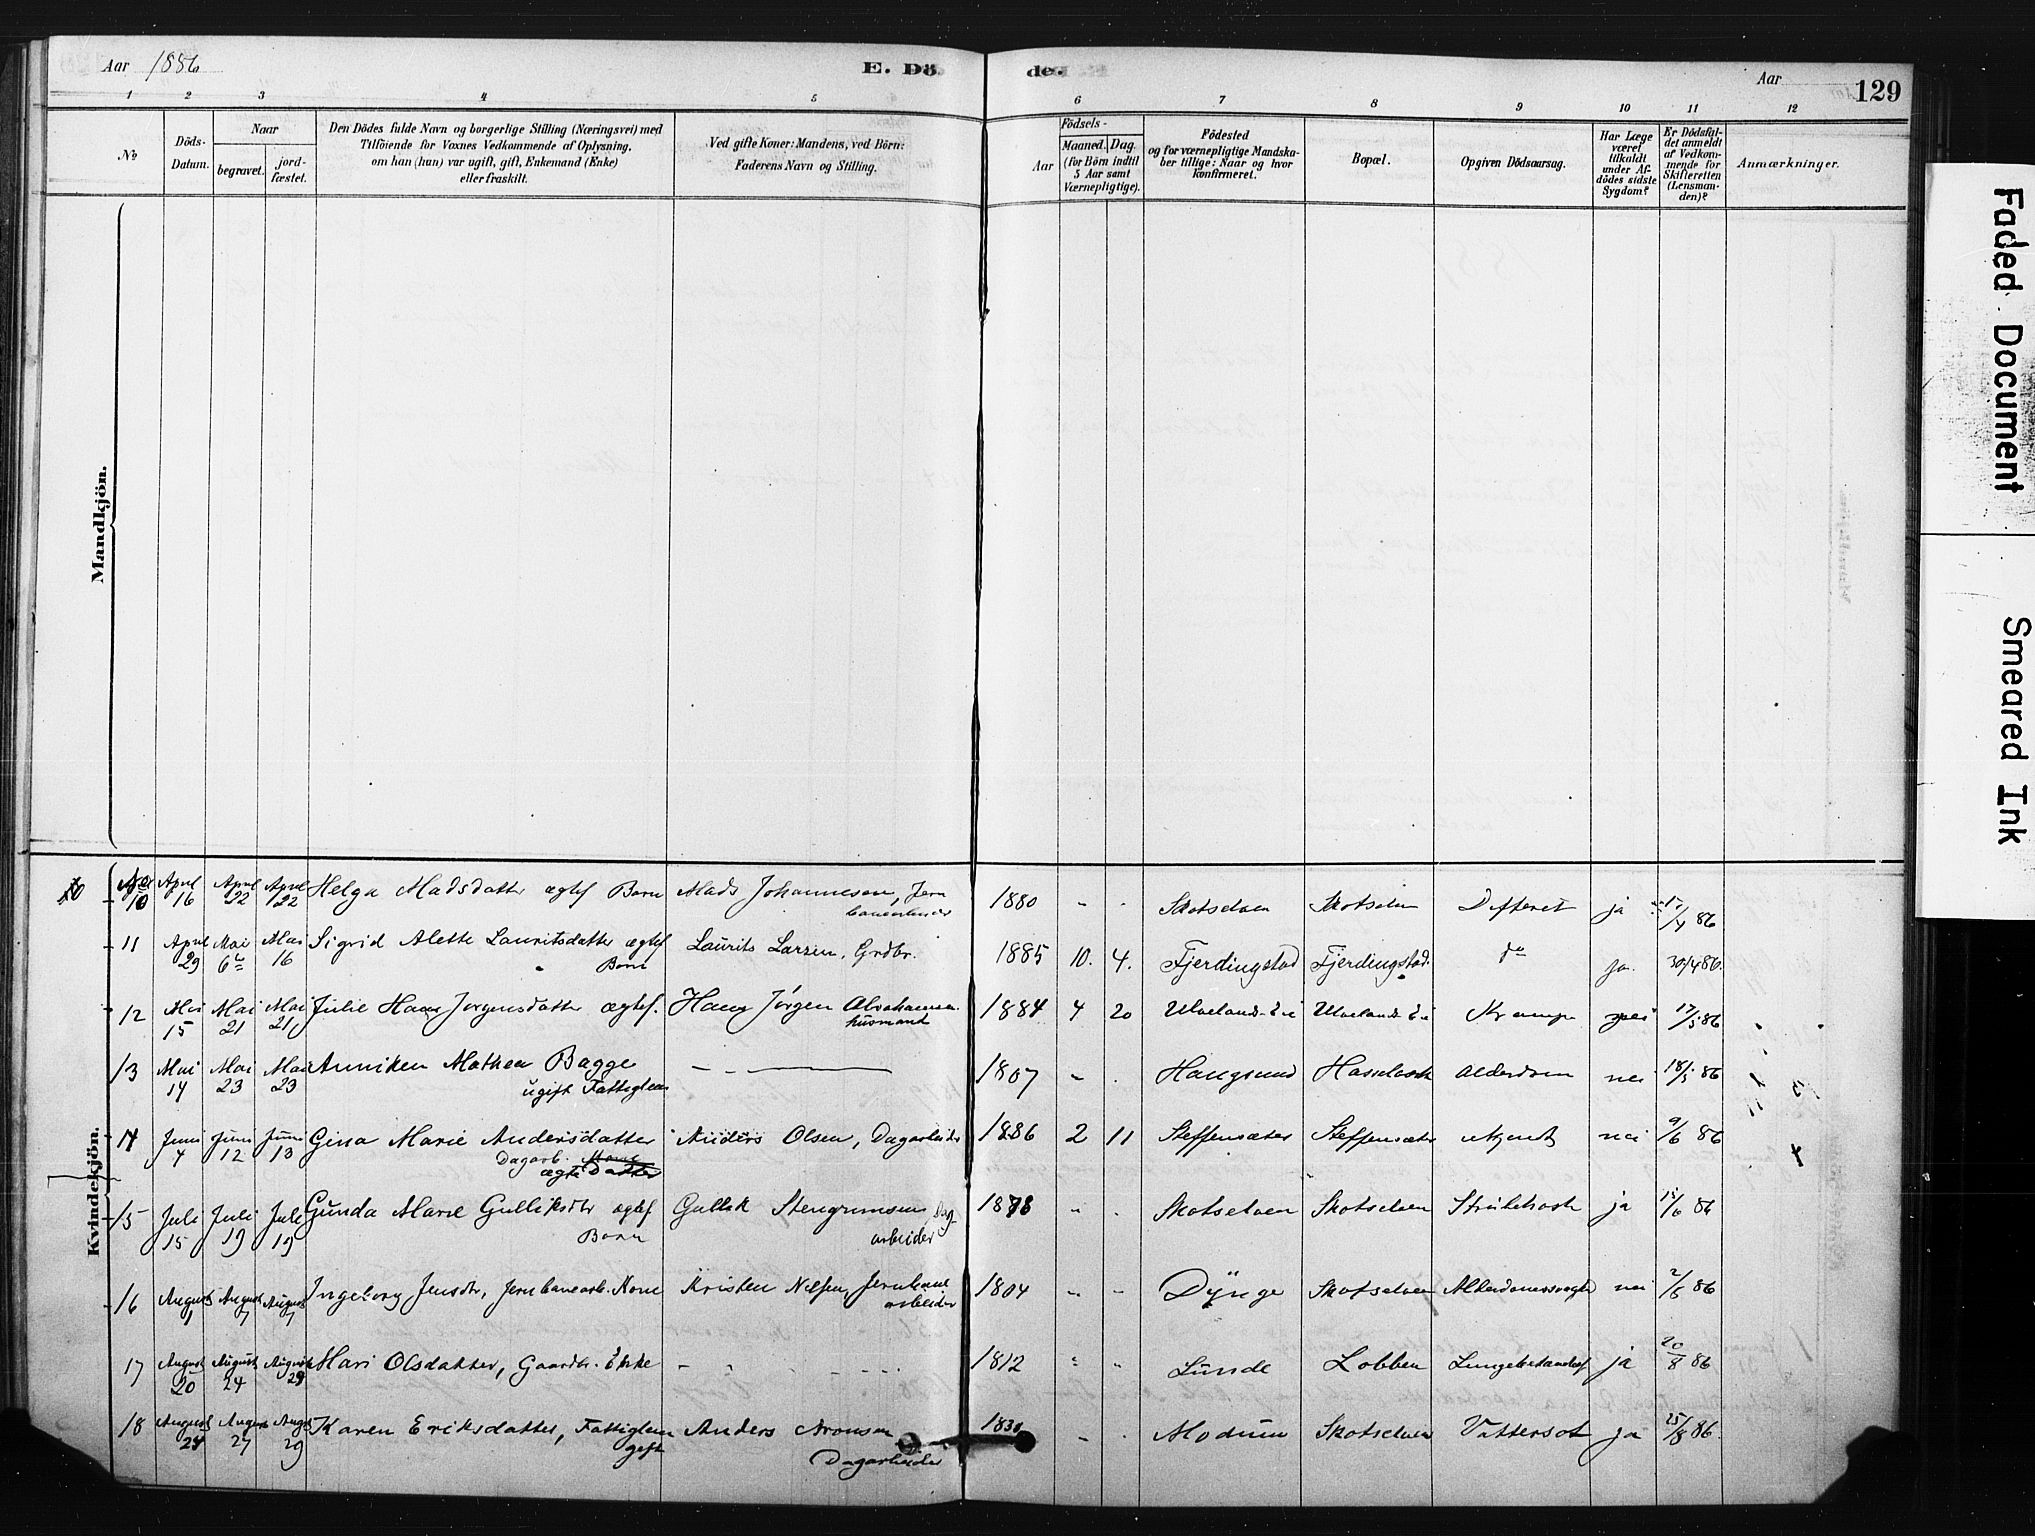 Aar 1886
E. Dö
de.
Aar
129
1 2 3 4 5 6 7 8 9 10 11 12
No
Döds-
Datum.
Naar
begravet.
jord-
fæstet.
Den Dödes fulde Navn og borgerlige Stilling (Næringsvei) med
Tilföiende for Voxnes Vedkommende af Oplysning,
om han (hun) var ugift, gift, Enkemand (Enke)
eller fraskilt.
Ved gifte Koner: Mandens, ved Börn:
Faderens Navn og Stilling.
Födsels-
Aar
Maaned. Dag.
(for Börn indtil
5 Aar samt
Værnepligtige).
Födested
og for værnepligtige Mandska-
ber tillige: Naar og hvor
konfirmeret.
Bopæl.
Opgiven Dödsaarsag.
Har Læge
været
tilkaldt
under Af-
dödes sidste
Sygdom?
Er Dödsfal-
det anmeldt
af Vedkom-
mende for
Skifteretten
(Lensman-
den)?
Anmærkninger.
Mandkjön.
Kvindekjön.
10 April 16 April 22 April 22 Helga Madsdatter ægtef Barn Mads Johannesen, Jern 1880 Skotselven Skotselven Difterit ja /4 86
11 April 29 Mai 6 Mai 16 Sigrid Alette Lauritsdatter ægtef Barn Laurits Larsen, Grdbr. 1885 10. 4. Fjerdingstad Fjerdingstad. do ja. 30/4 86.
12 Mai 15 Mai 21 Mai 21 Julie Hans Jørgensdatter ægtef. Hans Jørgen Abrahamsen husmand 1884 4 20 Ulveland Ulveland Krampe nei 17/5 86
13 Mai 14 Mai 23 Mai 23 Anniken Mathea Bagge ugift Fattiglem 1807 Haugsund Alderdom nei 18/5 86
14 Juni 4 Juni 12 Juni 13 Gina Marie Andersdatter Dagarb. ægte Datter Anders Olsen, Dagarbeider 1886 2 11 Steffensæter Steffensæter ukjendt nei 9/6 86
15 Juli 15 Juli 19 Juli 19 Gunda Marie Gulliksdtr ægtef Barn Gullik Stengrimsen Dagarbeider 1878 Skotselven Skotselven Strubehoste ja 15/6 86
16 August 1 August 7 August 7 Ingeborg Jensdtr, Jernbanearb. Kone Kristen Nilsen, Jernbanearbeider 1804 Dynge Skotselven Alderdomssvaghed nei 2/8 86
17 August 20 August 24 August 29 Mari Olsdatter, Gaardbr. Enke 1812 Lunde Lobben Lungebetændelse ja 20/8 86
18 August 24 August 27 August 29 Karen Eriksdatter, Fattiglem gift Anders Aronsen Dagarbeider 1830 Modum Skotselven Vattersot ja 25/8 86.
Faded Document
Smeared Ink